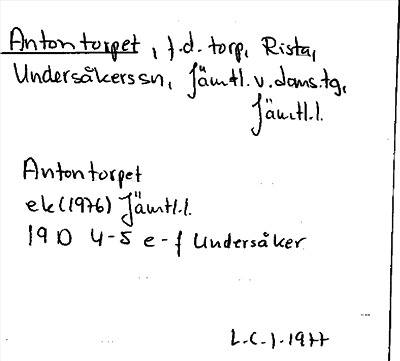 Antontorpet, f.d. torp, Rista,
Undersåkers sn, Jämtl. v. doms. tg,
Jämtl.l.
Antontorpet
ek (1976) Jämtl.l.
19 D 4-5 e-f Undersåker
L.C.J. 1977